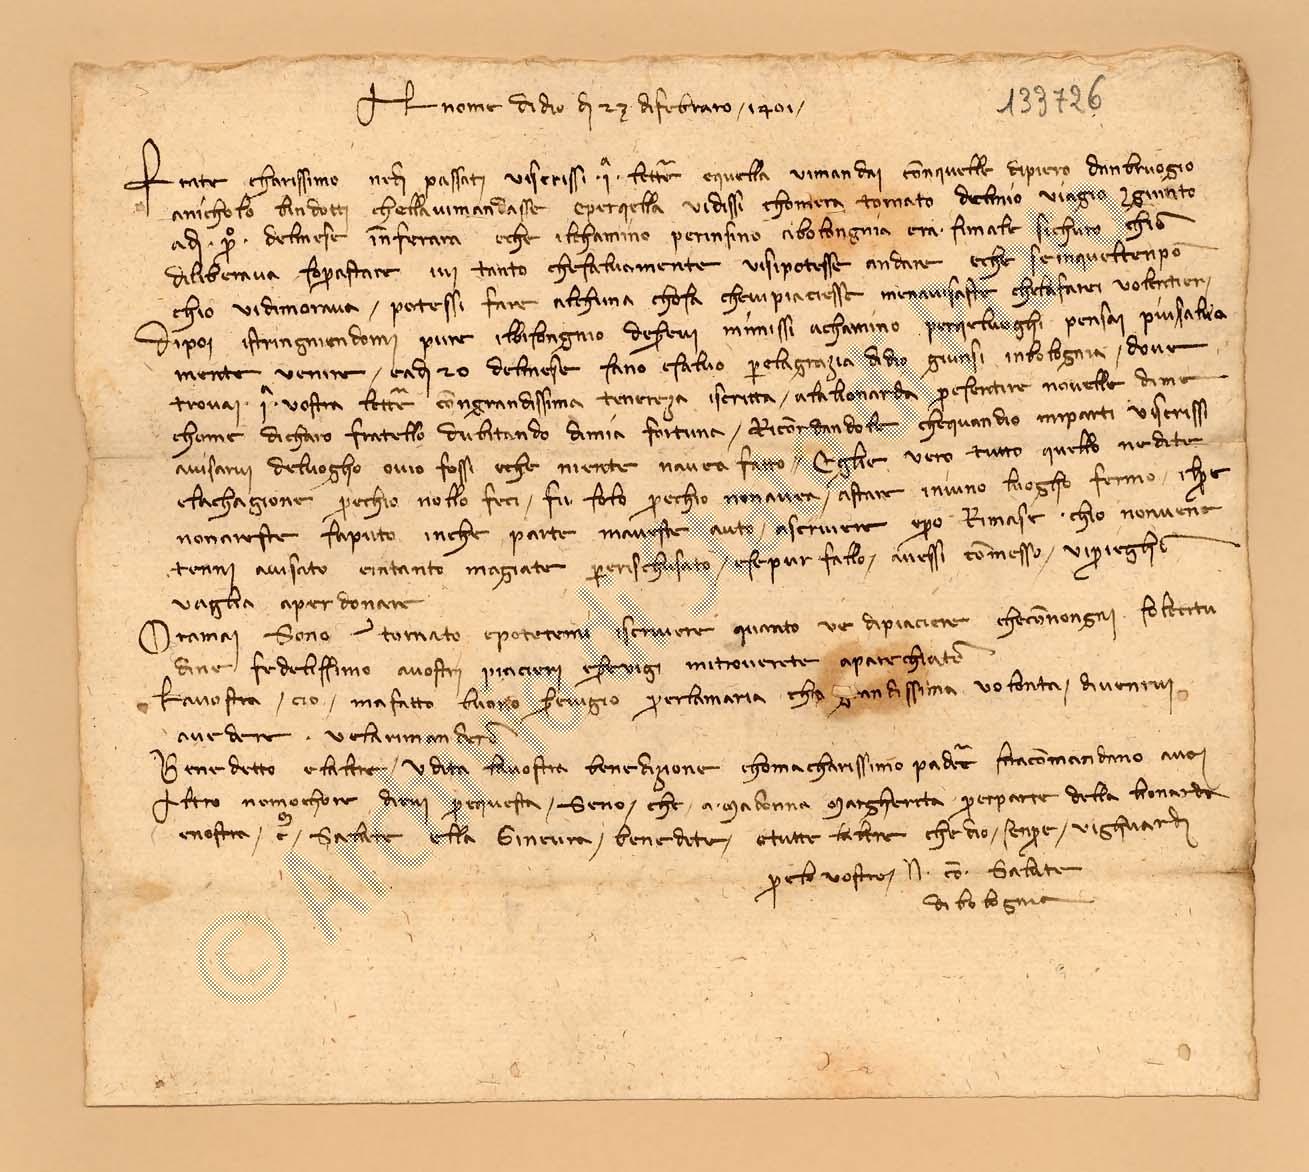 133726
Al nome di dio dì 23 di febraro 1401
Frate charissimo nedì passati viscrissi .1a. lettera equella vimandai conquelle dipiero danbruogio
anicholo bindotti chellavimandasse eperquella vidissi chomera tornato delmio viagio giunto
adì po. delmese inferara eche ilchamino perinsino abolongnia era simale sichuro chio
diliberava soprastare ivi tanto chesalvamente visipotesse andare eche seinqueltenpo
chio vidimorava potessi fare alchuna chosa chempiaciesse menavisaste chelafarei volentier
Dipoi istringniendomi pure ilbisongnio deservi mimissi achamino perqueluoghi pensai piusalva
mente venire eadì 20 delmese sano esalvo perlagrazia didio giunsi inbolognia dove
trovai .1a. vostra lettera congrandissima tenereza iscritta alalionarda persentire novelle dime
chome dicharo fratello dubitando dimia fortuna Ricordandole chequando miparti viscrissi
avisarvi deluogho ovio fossi eche niente navea fatto Eglie vero tutto quello nedite
elachagione perchio nollo feci fu solo perchio nonavea astare iniuno luogho fermo ilpe
nonareste saputo inche parte maveste auto ascrivere epero Rimase chio nonvene
tenni avisato eintanto magiate perischusato esepur fallo avessi comesso vipriegho
vaglia aperdonare
Oramai Sono tornato epotetemi iscrivere quanto ve dipiaciere checonongni sollecitu
dine fedelissimo avostri piacieri eservigi mitroverete aparechiato
Lavostra cio mafatto buono servigio perlamaria cha grandissima volonta divenirvi
avedere velarimandero
Benedetto elaltre Udita lavostra benedizione chomacharissimo padre siracomandano avoi
Altro nonnochore dirvi perquesta Seno che a Madonna Margherita perparte della lionarda
enostra mi Salute ella Ginevra benedite etutte laltre chedio senpre vighuardi
perlo vostro N. co. Salute
di bolognia
© Archivio di Stato di Prato